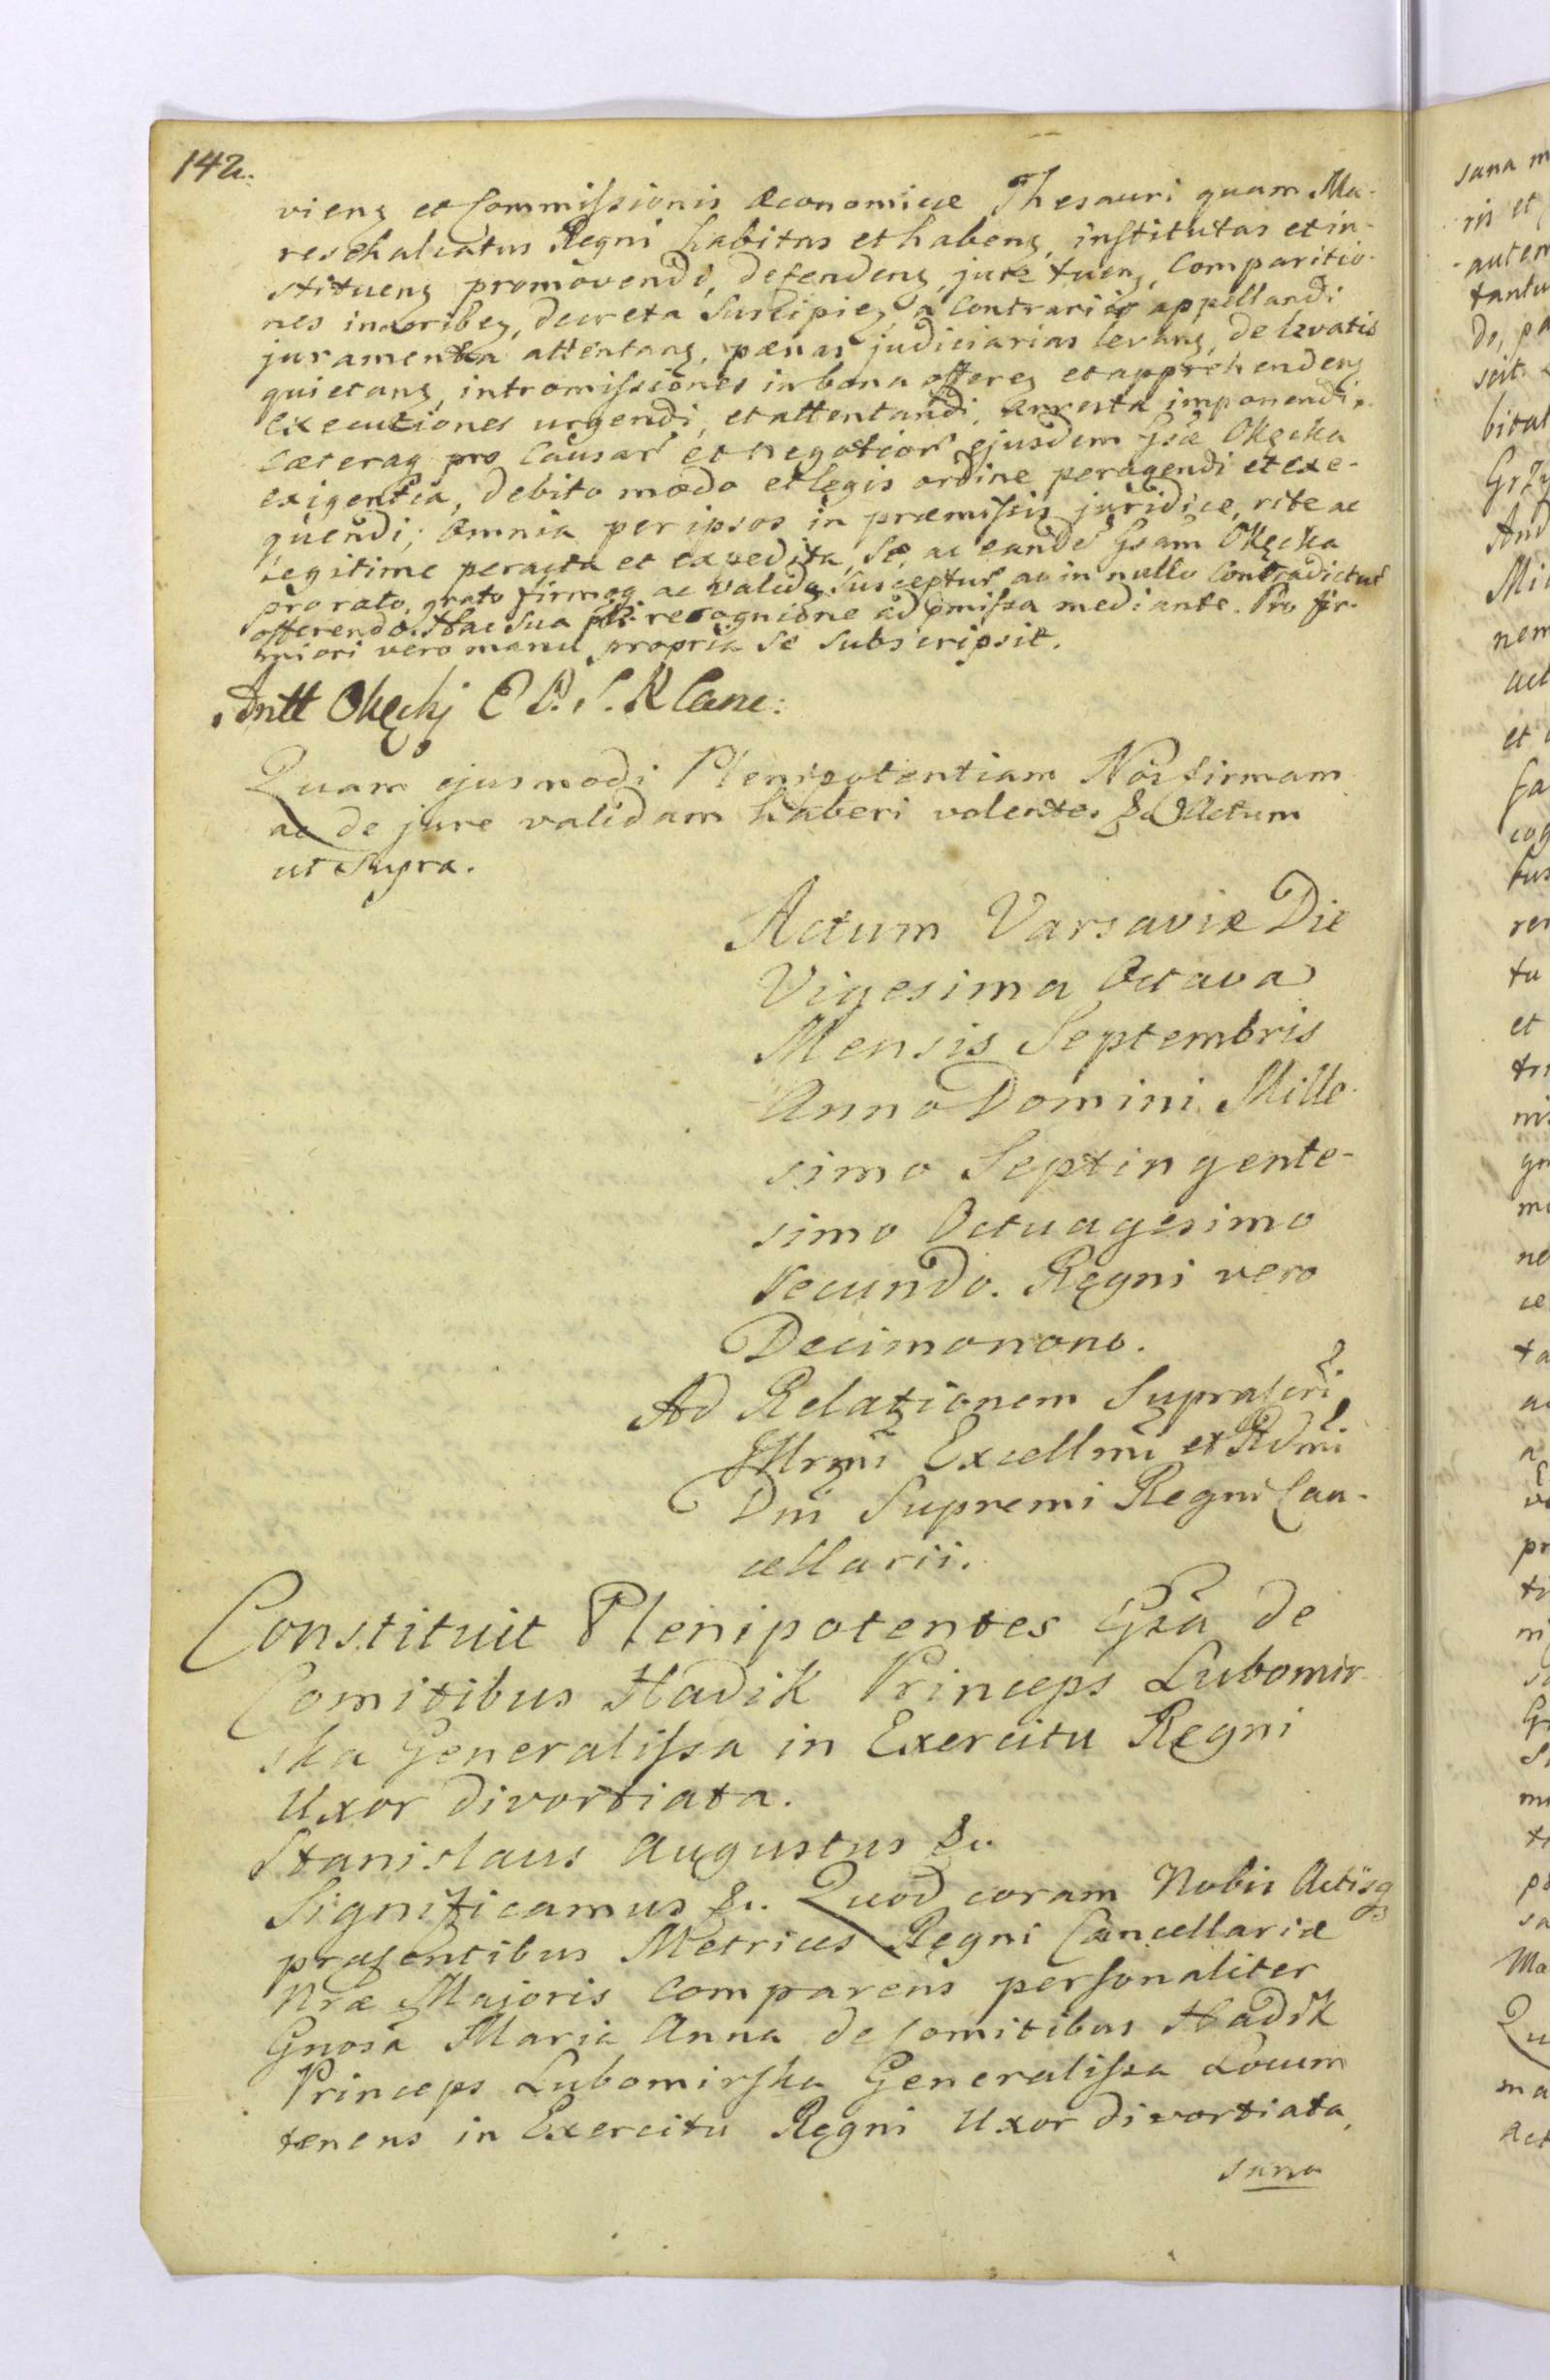 142.
vieng et Commiſsionis Œconomicæ Thesauri quam Ma-
reschalcatus Regni habitas et habeng, inſtitutas et in-
stitueng promovendi, defendeng, jure tueng, Comparitio-
nes inscribeg, decreta Suscipieg, a Contrariis appellandi
juramenta attentang, pænas judiciarias levang, de levatis
quietang, intromiſsiones in bona offereg et apprehendeng
executiones urgendi, et attentandi, arresta imponendi,
Cæteraq pro Causar et Negotior ejusdem Gsæ Okęcka
exigentia, debito modo et legis ordine peragendi et exe-
quendi; Omnia per ipsos in præmiſsis juridice, rite ac
legitime peracta et expedita, Se, ac eande Gsam Okęcka
pro rato, grato firmoq ac valido Susceptur ac in nullo Contradictur
offerendo. Hac Sua recognione ad pmiſsa mediante. Pro fir-
miori vero manu propria Se Subscripsit.
Antt Okęckj E P. S. R Canc:
Quam ejusmodi Plenipotentiam Nos firmam
ac de jure validam haberi volentes &c Actum
ut Supra.
Actum Varsaviæ Die
Vigesima Octava
Mensis Septembris
Anno Domini Mille-
simo Septingente-
simo Octuagesimo
Secundo. Regni vero
Decimonono.
Ad Relationem Supraſcri
Illrmi Excellmi et Rdmi
Dni Supremi Regni Can-
cellarii.
Constituit Plenipotentes Gsa de
Comitibus Hadik Princeps Lubomir-
ska Generaliſsa in Exercitu Regni
Uxor divortiata.
Stanislaus Augustus &c.
Significamus &c. Quod coram Nobis Actisq
præſentibus Metrices Regni Cancellariæ
Nræ Majoris Comparens perſonaliter
Gnosa Maria Anna de Comitibus Hadik
Princeps Lubomirſka Generaliſsa Locum
tenens in Exercitu Regni Uxor divortiata,
sana